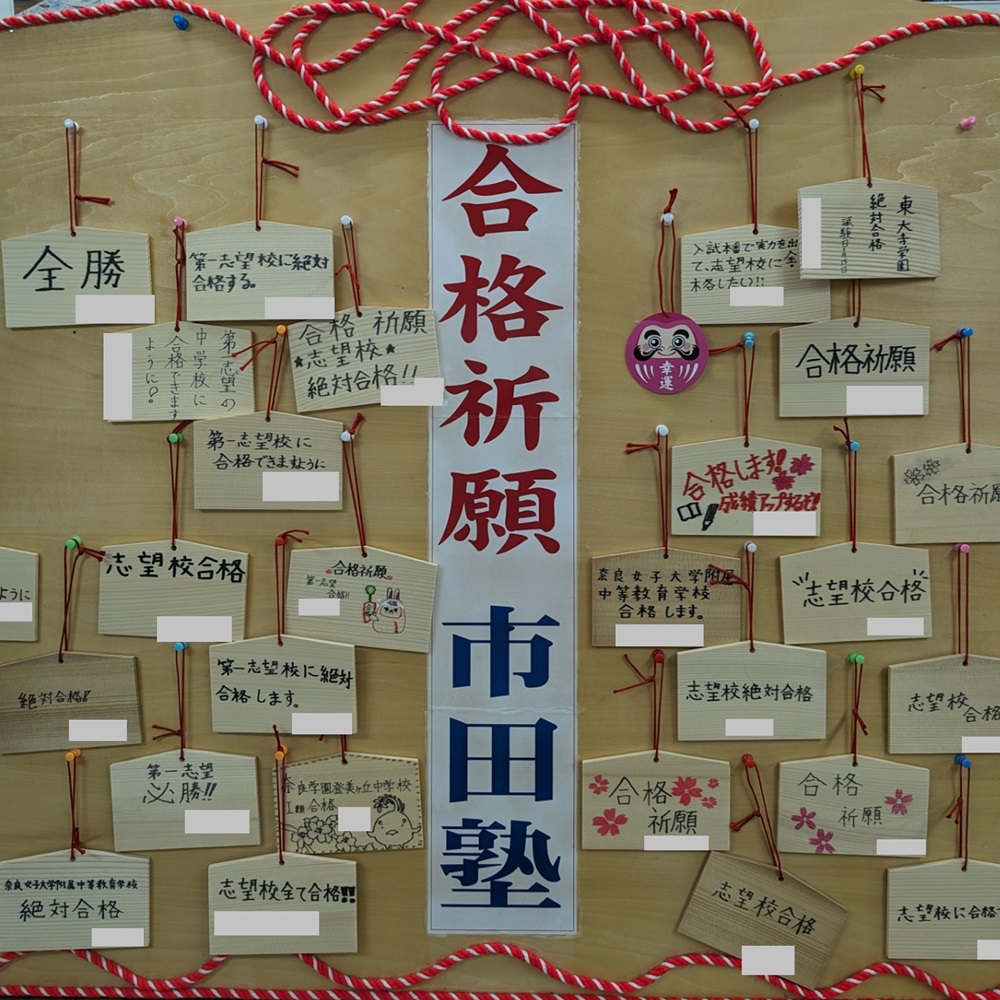 合格祈願 市田塾
全勝
第一志望校に絶対
合格する。
第一志望の
中学校に
合格できます
ように。
合格 祈願
★志望校★
絶対合格!!
第一志望校に
合格できますように
ように
志望校合格
合格祈願
第一志望
合格!!
絶対合格!
第一志望校に絶対
合格します。
第一志望
必勝!!
奈良学園登美ヶ丘中学校
合格
奈良女子大学附属中等教育学校
絶対合格
志望校全て合格!!
入試本番で実力を出
て、志望校に合
格したい!!
東大寺学園
絶対合格
幸運
合格祈願
合格します!
成績アップするぞ!
合格祈願
奈良女子大学附属
中等教育学校
合格します。
志望校合格
志望校絶対合格
志望校
合格
合格
祈願
合格
祈願
志望校合格
志望校に合格